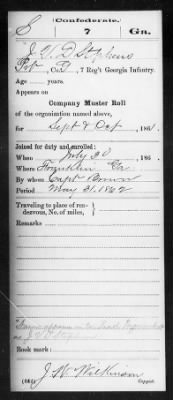 (Confederate.)
S 7 Ga.
J. V. D. Stephens
Pvt, Co. , 7 Reg't Georgia Infantry.
Age years.
Appears on
Company Muster Roll
of the organization named above,
for Sept & Oct , 186 .
Joined for duty and enrolled:
When July 30 , 186 .
Where Franklin Ga
By whom Capt Brown
Period May 31. 1862
Traveling to place of ren-
dezvous, No. of miles,
Remarks
as J. V. D. Stephens
Book mark:
J. W. Wilkinson
(642) Copyist.